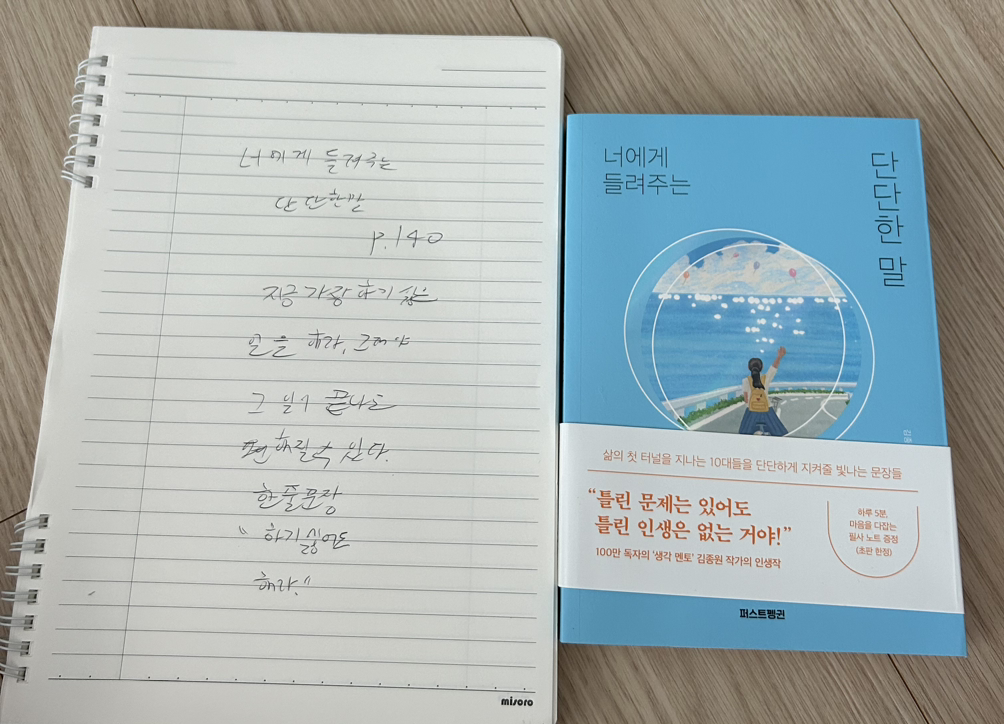 너에게 들려주는
단단한말
p.140
지금 가장 하기 싫은
일을 해라, 그래야
그 일이 끝나도
편해질 수 있다.
한줄문장
"하기싫어도
해라."
misoro
너에게
들려주는
단단한 말
삶의 첫 터널을 지나는 10대들을 단단하게 지켜줄 빛나는 문장들
“틀린 문제는 있어도
틀린 인생은 없는 거야!”
100만 독자의 '생각 멘토' 김종원 작가의 인생작
하루 5분,
마음을 다잡는
필사 노트 증정
(초판 한정)
퍼스트펭귄